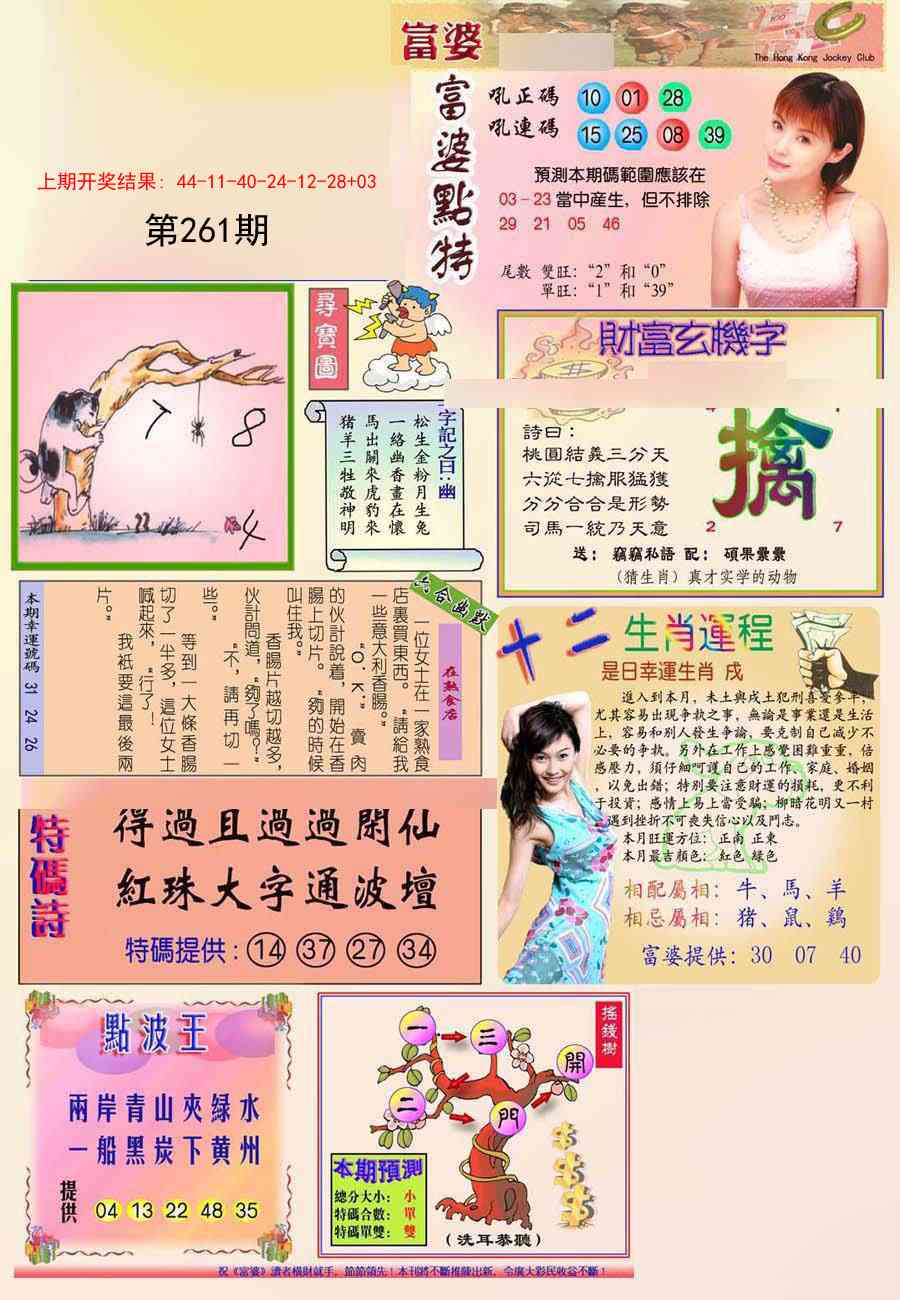 富婆
The Hong Kong Jockey Club
富婆點特
吼正碼 10 01 28
吼連碼 15 25 08 39
預測本期碼範圍應該在
03-23當中産生，但不排除
29 21 05 46
尾數 雙旺：“2”和“0”
單旺：“1”和“39”
上期开奖结果: 44-11-40-24-12-28+03
第261期
7
8
4
尋寶圖
字記之曰：幽
松生金粉月生兔
一絡幽香畫在懷
馬出關來虎豹來
猪羊三牲敬神明
財富玄機字
詩曰：
桃圓結義三分天
六從七擒服猛獲
分分合合是形勢
司馬一統乃天意
擒
2
7
送：竊竊私語 配：碩果纍纍
（猜生肖）真才实学的动物
六合幽默
在熟食店
一位女士在一家熟食
店裏買東西。“請給我
一些意大利香腸。”
“O.K.”賣肉
的伙計說着，開始在香
腸上切片。“夠的時候
叫住我。”
香腸片越切越多，
伙計問道，“夠了嗎？”
“不，請再切一
些。”
等到一大條香腸
切了一半多，這位女士
喊起來，“行了！
我衹要這最後兩
片。”
本期幸運號碼 31 24 26
十二生肖運程
是日幸運生肖 戌
進入到本月，未土與戌土犯刑喜憂參半，
尤其容易出現争執之事，無論是事業還是生活
上，容易和别人發生争論，要克制自己减少不
必要的争執。另外在工作上感覺困難重重，倍
感壓力，須仔細呵護自己的工作、家庭、婚姻
，以免出錯；特别要注意財運的損耗，更不利
于投資；感情上易上當受騙；柳暗花明又一村
遇到挫折不可喪失信心以及鬥志。
本月旺運方位：正南 正東
本月最吉顏色：紅色 緑色
相配屬相：牛、馬、羊
相忌屬相：猪、鼠、鷄
富婆提供：30 07 40
特碼詩
得過且過過閑仙
紅珠大字通波壇
特碼提供：14 37 27 34
點波王
兩岸青山夾緑水
一船黑炭下黄州
提供 04 13 22 48 35
搖錢樹
一
三
開
二
門
本期預測
總分大小：小
特碼合數：單
特碼單雙：雙
（洗耳恭聽）
祝《富婆》讀者横財就手，節節領先！本刊將不斷推陳出新，令廣大彩民收益不斷！